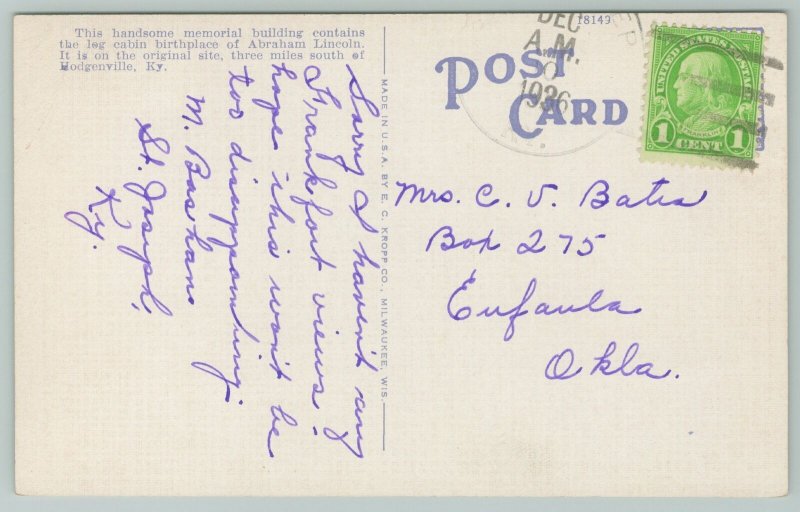 This handsome memorial building contains
the log cabin birthplace of Abraham Lincoln.
It is on the original site, three miles south of
Hodgenville, Ky.
Sorry I haven't any
Frankfort views.
hope this won't be
too disappointing.
M. Basham
St. Joseph,
Ky.
MADE IN U.S.A. BY E. C. KROPP CO., MILWAUKEE, WIS.
18149
POST
CARD
DEC
A.M.
1936
UNITED STATES POSTAGE
FRANKLIN
1 CENT 1
Mrs. C. V. Bates
Box 275
Eufaula
Okla.